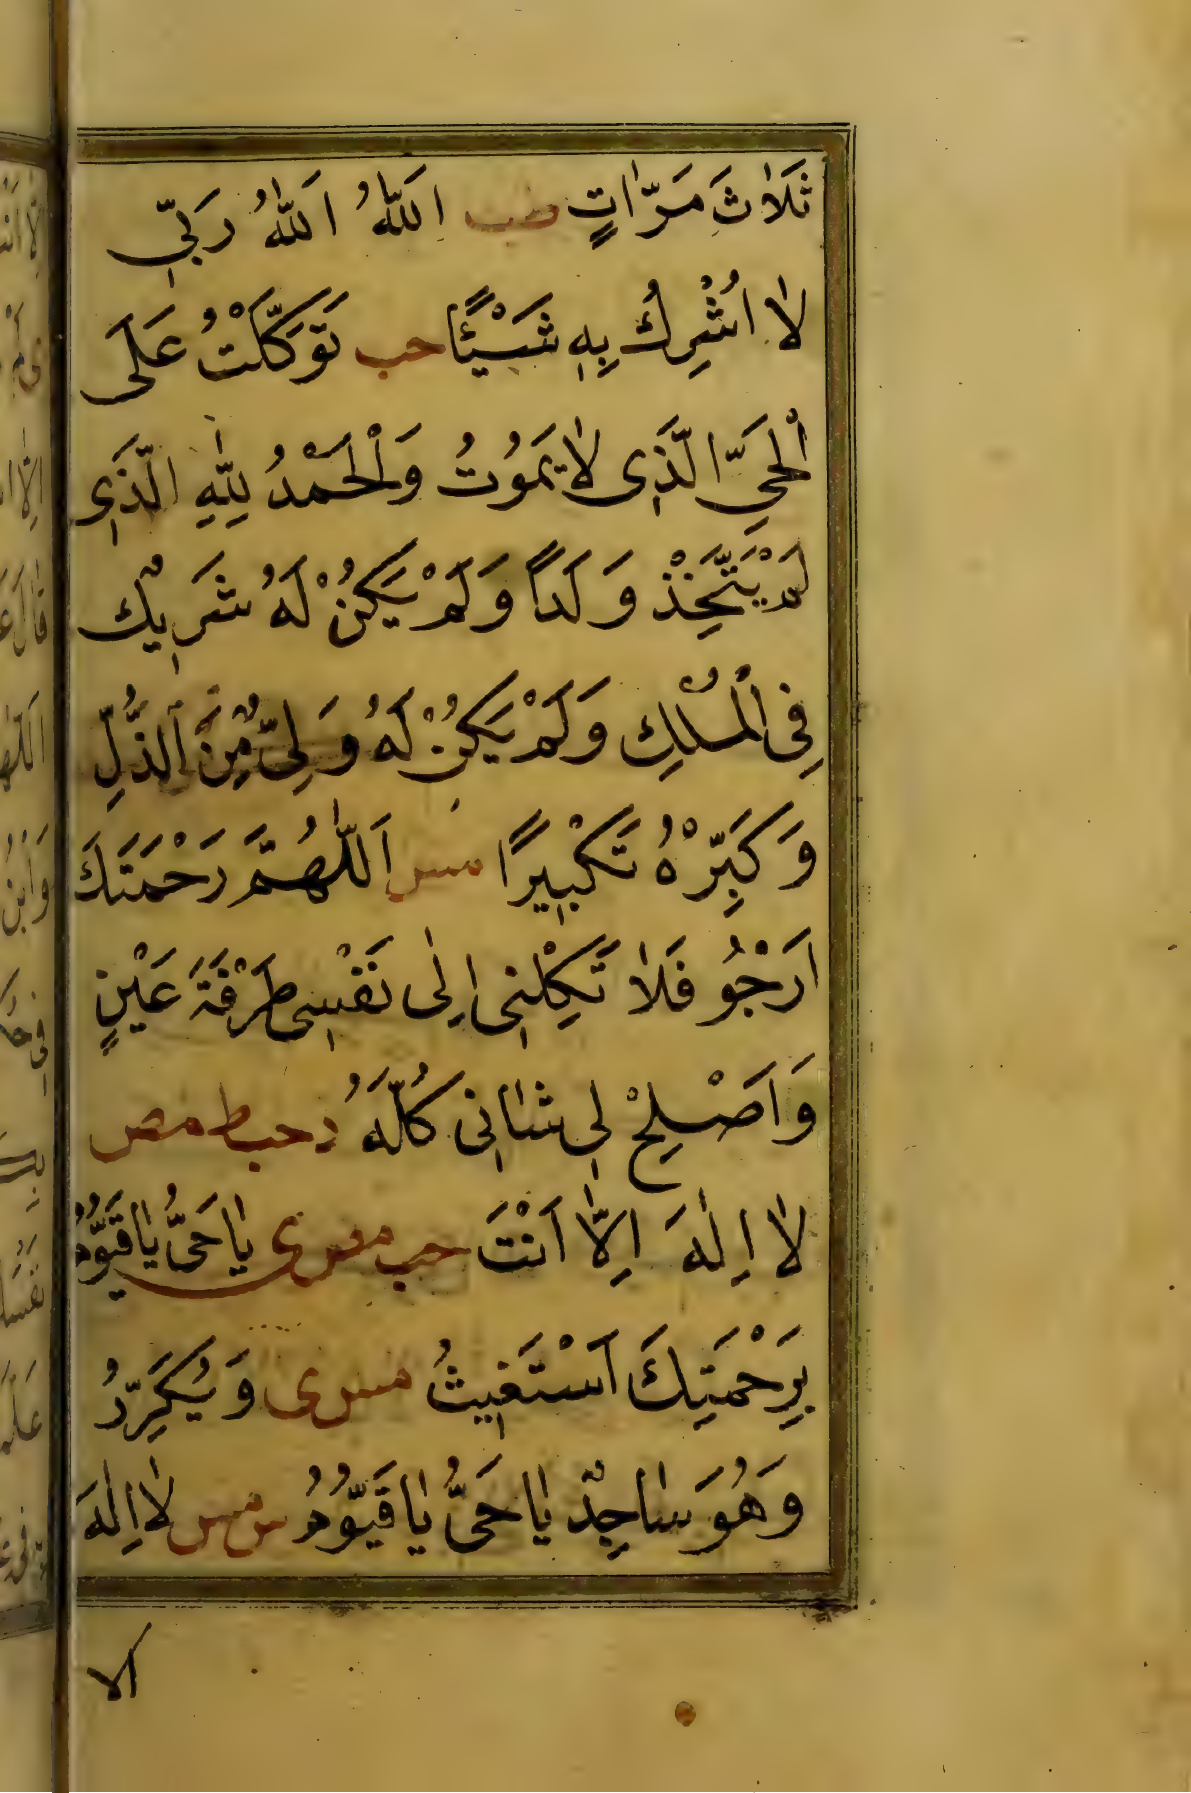 ثَلَاثَ مَرَّاتٍ طب اَللّٰهُ اَللّٰهُ رَبِّى
لَا اُشْرِكُ بِهِ شَيْئًا حب تَوَكَّلْتُ عَلَى
الْحَىِّ الَّذِى لَا يَمُوتُ وَالْحَمْدُ لِلّٰهِ الَّذِى
لَمْ يَتَّخِذْ وَلَدًا وَلَمْ يَكُنْ لَهُ شَرِيكٌ
فِى الْمُلْكِ وَلَمْ يَكُنْ لَهُ وَلِىٌّ مِنَ الذُّلِّ
وَكَبِّرْهُ تَكْبِيرًا مس اَللّٰهُمَّ رَحْمَتَكَ
اَرْجُو فَلَا تَكِلْنِى اِلٰى نَفْسِى طَرْفَةَ عَيْنٍ
وَاَصْلِحْ لِى شَانِى كُلَّهُ د حب ط مص
لَا اِلٰهَ اِلَّا اَنْتَ حب مص ى يَا حَىُّ يَا قَيُّومُ
بِرَحْمَتِكَ اَسْتَغِيثُ مس ى وَيُكَرِّرُ
وَهُوَ سَاجِدٌ يَا حَىُّ يَا قَيُّومُ س مس لَا اِلٰهَ
الا